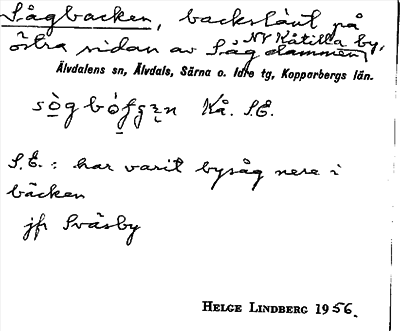 Sågbacken, backslänt på
NV Kåtilla by,
östra sidan av Sågdammen,
Älvdalens sn, Älvdals, Särna o. Idre tg, Kopparbergs län.
Kå. S.E.
S.E.: har varit bysåg nere i
bäcken
jfr Sväsby
HELGE LINDBERG 1956.